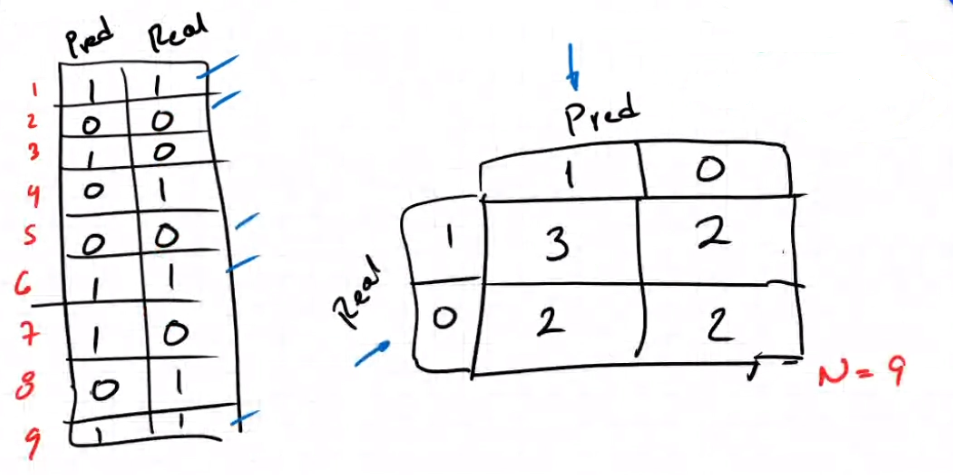 Pred Real
1 1 1
2 0 0
3 1 0
4 0 1
5 0 0
6 1 1
7 1 0
8 0 1
9 1 1
Pred
1 0
Real
1 3 2
0 2 2
N = 9